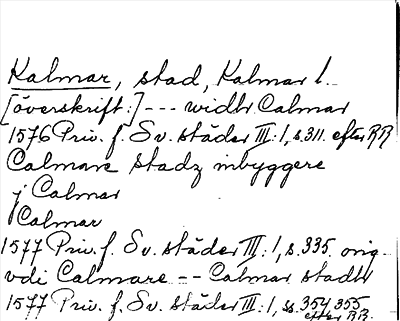 Kalmar, stad, Kalmar l.
[överskrift:] --- widh Calmar
1576 Priv. f. Sv. städer III:1, s. 311. efter RR
Calmare stadz inbyggere
j Calmar
Calmar
1577 Priv. f. Sv. städer III:1, s. 335. orig.
vdi Calmare -- Calmar stadh
1577 Priv. f. Sv. städer III:1, ss. 354, 355
efter RR.